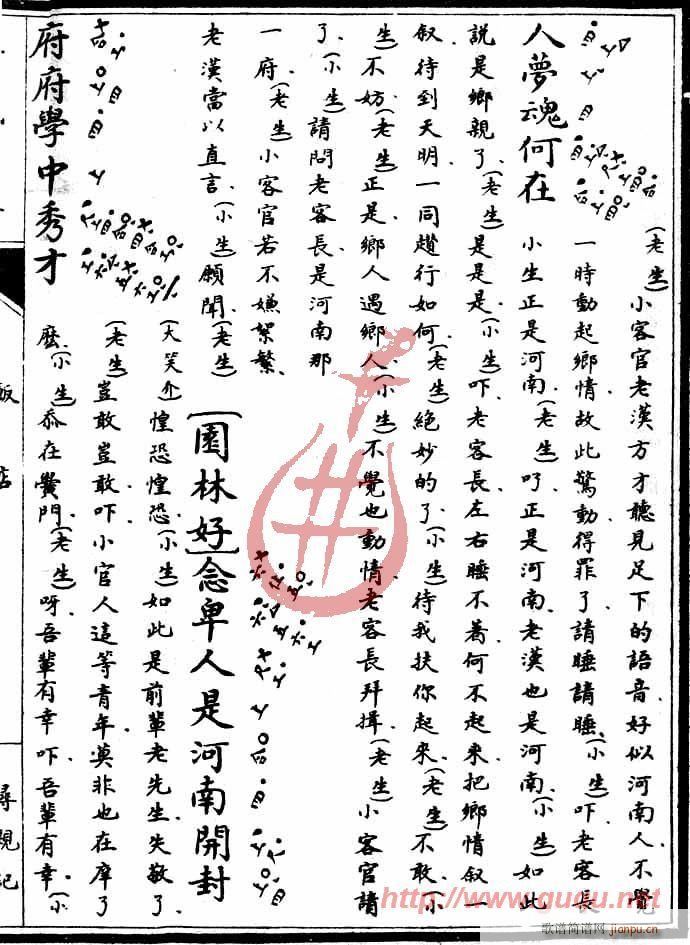 人夢魂何在
(老生)小客官老漢方才聽見足下的語音好似河南人不覺
一時動起鄉情故此驚動得罪了請睡請睡(小生)吓老客長
小生正是河南(老生)吖正是河南老漢也是河南(小生)如此
說是鄉親了(老生)是是是(小生)吓老客長左右睡不着何不起來把鄉情叙一
叙待到天明一同趲行如何(老生)絕妙的了(小生)待我扶你起來(老生)不敢(小
生)不妨(老生)正是鄉人遇鄉人(小生)不覺也動情老客長拜揖(老生)小客官請
了(小生)請問老客長是河南那
一府(老生)小客官若不嫌絮繁
老漢當以直言(小生)願聞(老生)
[園林好]念卑人是河南開封
府府學中秀才
(大笑介)惶恐惶恐(小生)如此是前輩老先生失敬了
(老生)豈敢豈敢吓小官人這等青年莫非也在庠了
麽(小生)忝在黌門(老生)呀吾輩有幸吓吾輩有幸(小
飯店
尋親記
http://www.gugu.net
歌谱简谱网
jianpu.cn